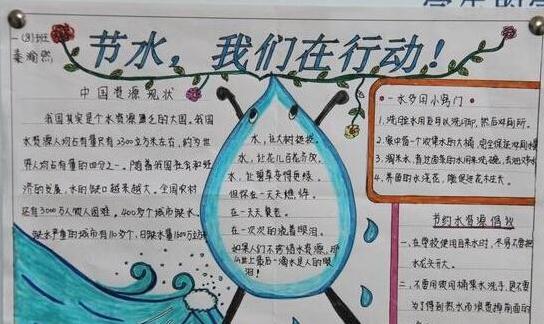 一(8)班
秦瀚然
节水，我们在行动！
中国资源现状
我国其实是个水资源匮乏的大国。我国
水资源人均占有量只有2300立方米左右，约为世
界人均占有量的四分之一。随着我国社会和经
济的发展，水的缺口越来越大。全国农村
还有3000万人饮水困难，400多个城市缺水，
缺水严重的城市有110多个，日缺水量1600万立方米
水，让大树挺拔，
水，让花儿百花齐放，
水，让翅草变得更绿。
但你在一天天憔悴，
在一天天衰老，
在一次次的流着眼泪。
如果人们不珍惜水资源，那
么世上最后一滴水是人的眼
泪！
一水多用小窍门
1.洗脸水用后可以洗脚，然后冲厕所。
2.家中有一个收集水的大桶，完全保证冲厕
3.淘米水、煮过面条的水用来洗碗，去油
4.养鱼的水浇花，能促进花木生长。
节约水资源倡议
一、在学校使用自来水时，不易要把
水龙头开大。
二、不要用很用桶集水洗手，更不要
为了得到热水而浪费掉前面的